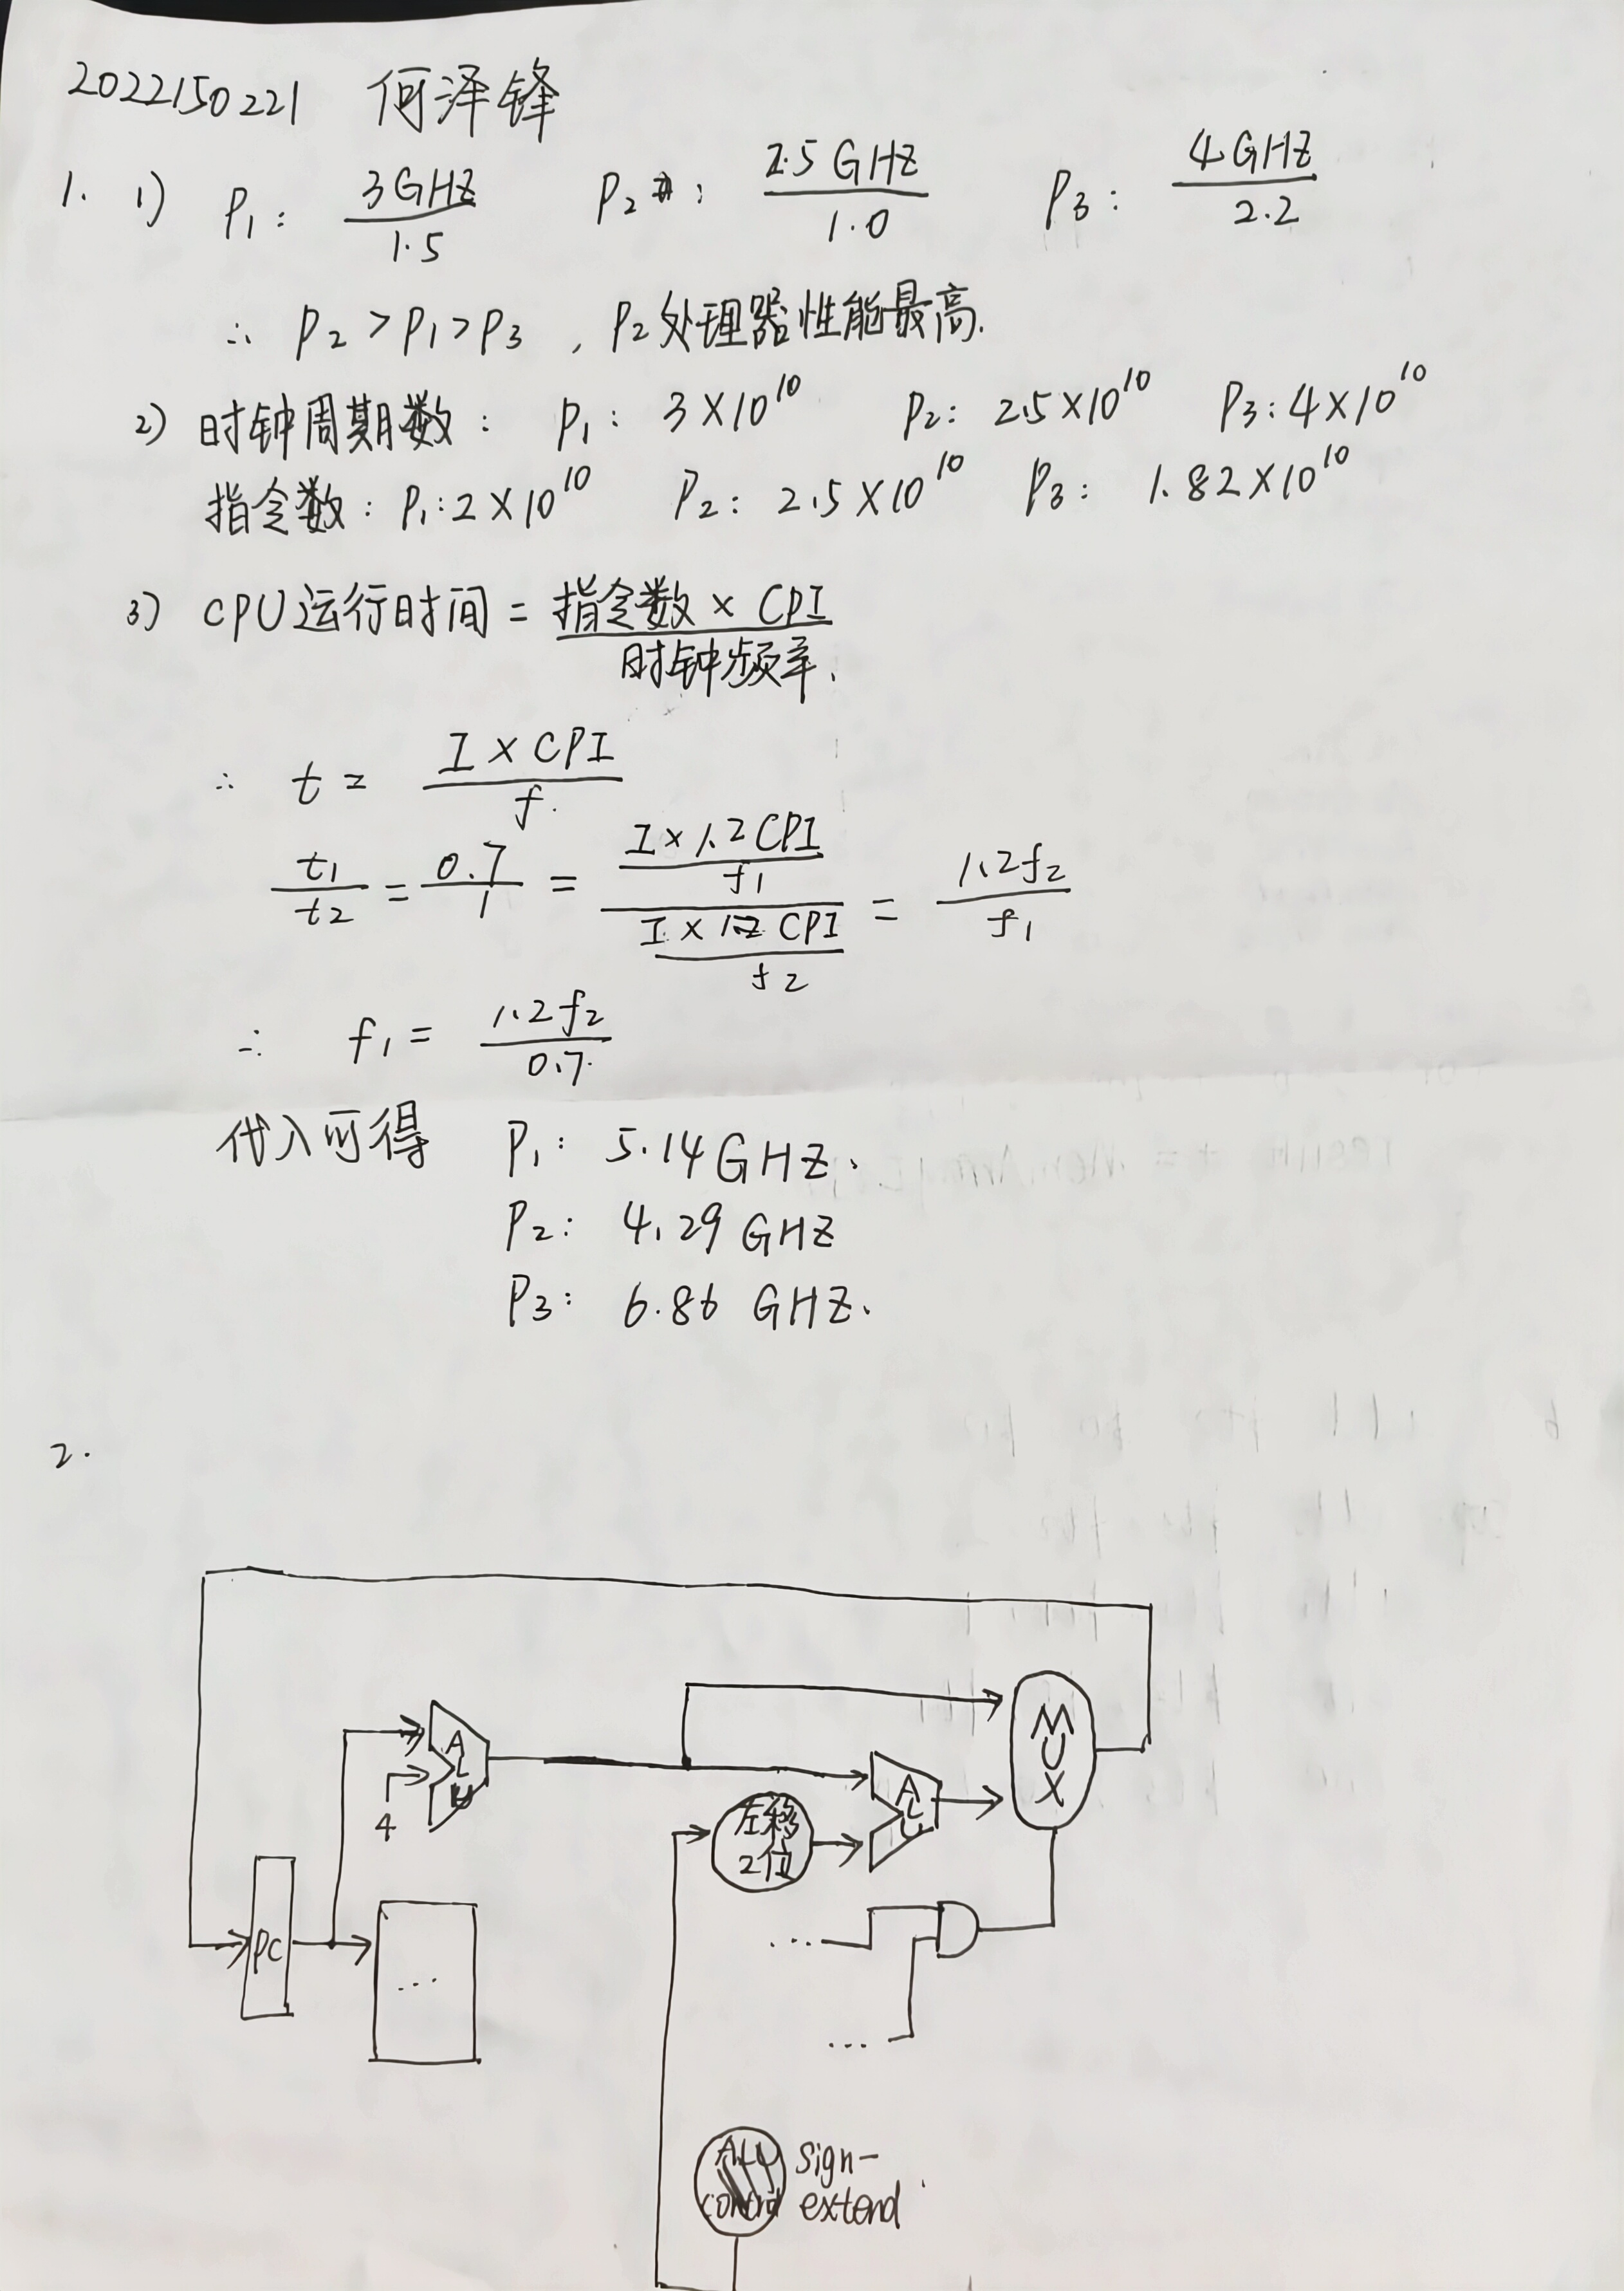 2022150221 何泽锋
1. 1) P₁: 3GHZ/1.5 P₂: 2.5GHZ/1.0 P₃: 4GHZ/2.2
∴ P₂>P₁>P₃ , P₂处理器性能最高.
2) 时钟周期数: P₁: 3×10¹⁰ P₂: 2.5×10¹⁰ P₃: 4×10¹⁰
指令数: P₁: 2×10¹⁰ P₂: 2.5×10¹⁰ P₃: 1.82×10¹⁰
3) CPU运行时间 = 指令数 × CPI / 时钟频率.
∴ t = I × CPI / f.
t₁/t₂ = 0.7/1 = (I × 1.2 CPI / f₁) / (I × CPI / f₂) = 1.2f₂/f₁
∴ f₁ = 1.2f₂/0.7
代入可得 P₁: 5.14GHZ.
P₂: 4.29 GHZ
P₃: 6.86 GHZ.
2.
ALU
MUX
4
左移
2位
ALU
PC
...
...
...
ALU
control
sign-
extend